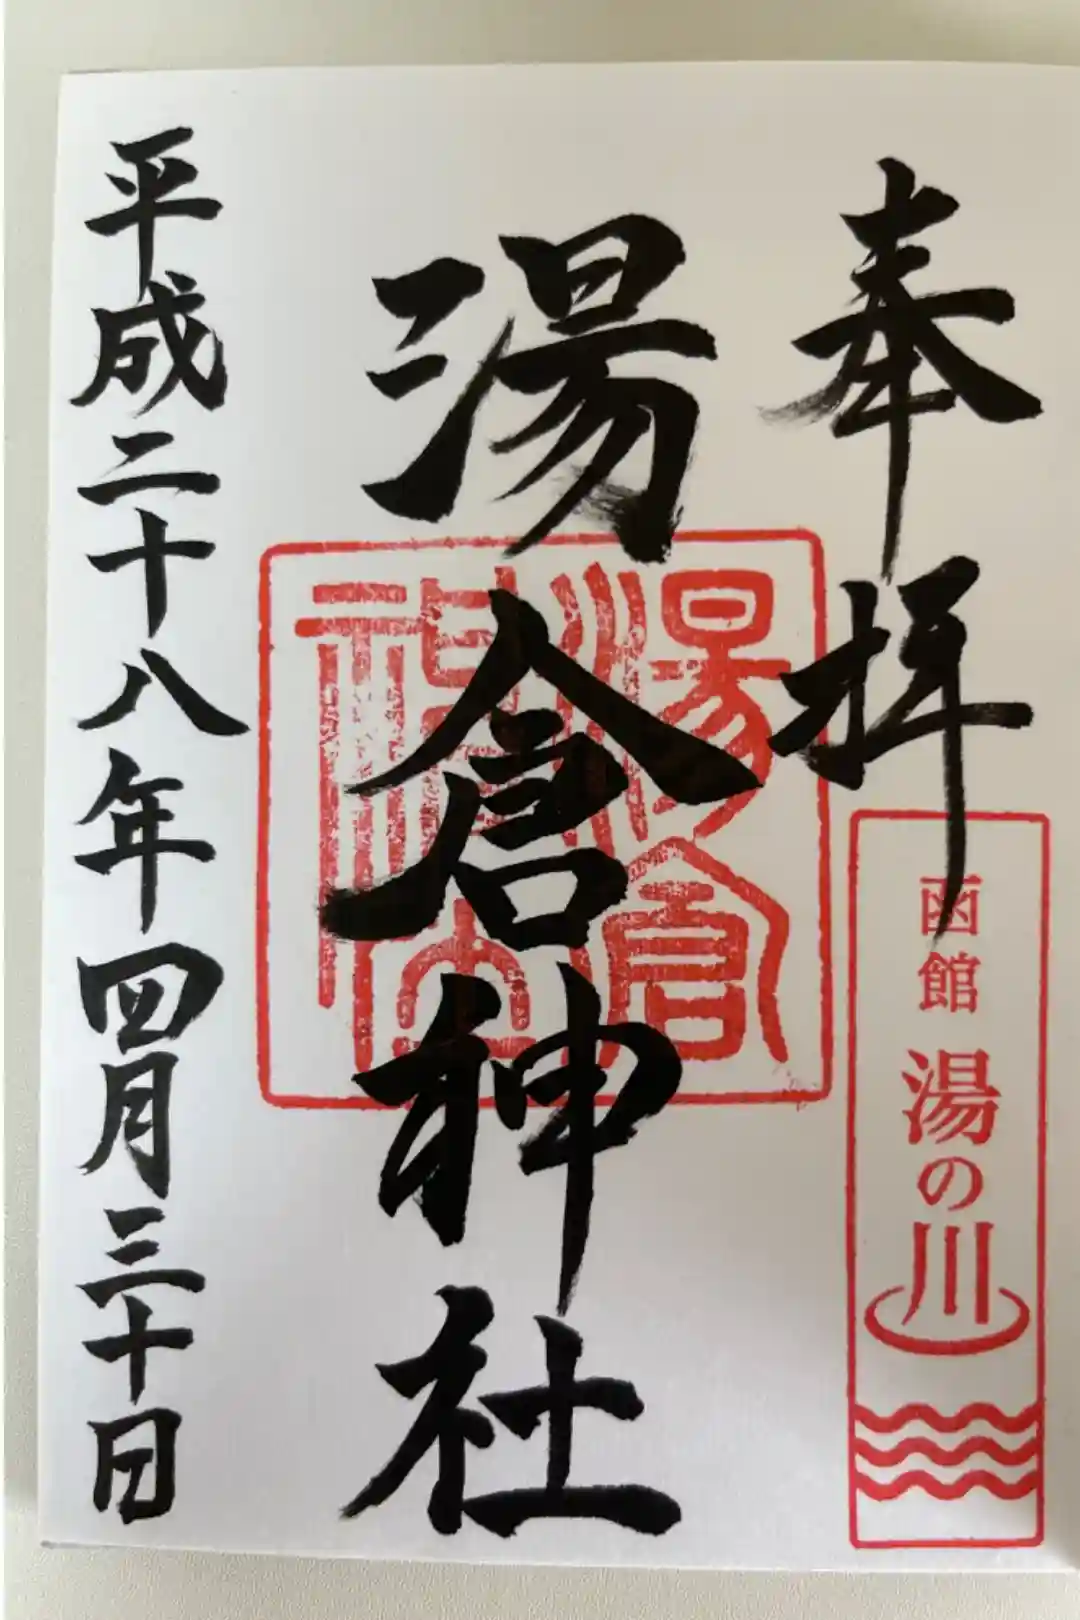 奉拝
函館 湯の川
湯倉神社
湯倉神社
平成二十八年四月三十日